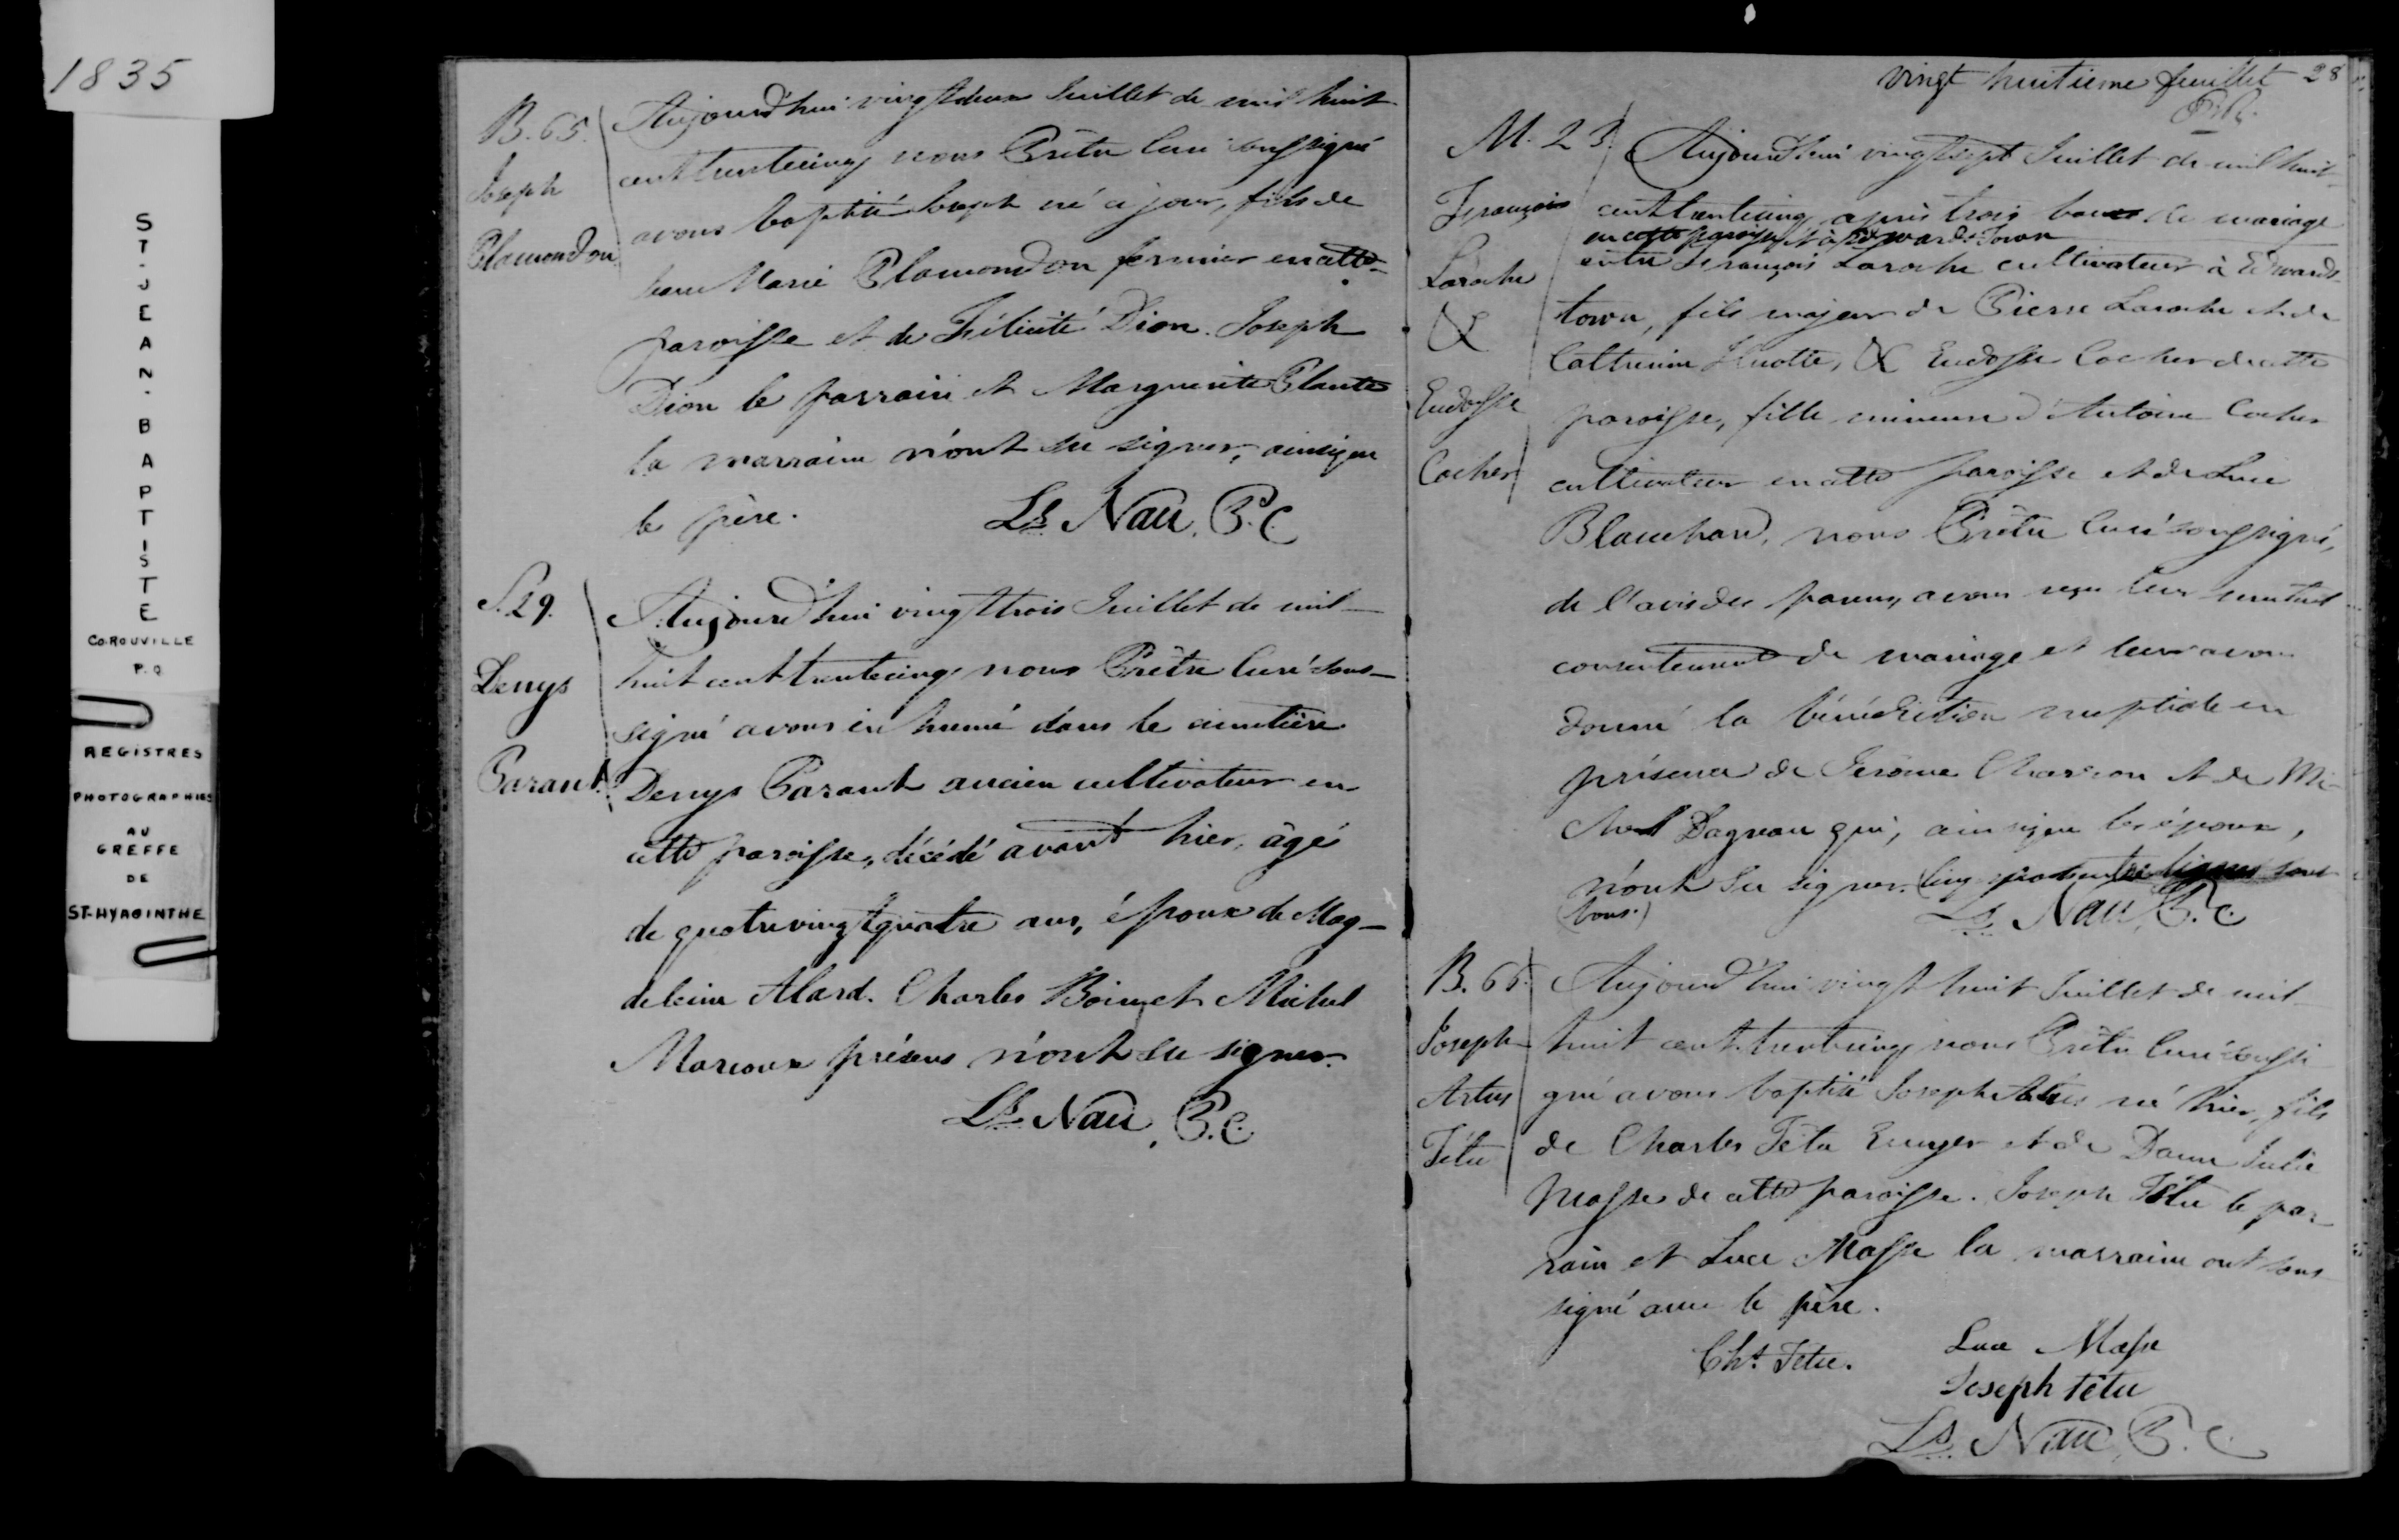 1835
ST-JEAN-BAPTISTE
CO-ROUVILLE
P.Q
REGISTRES
PHOTOGRAPHIES
AU
GREFFE
DE
ST-HYACINTHE
B. 65.
Joseph
Plamondon
Aujourd'hui vingtdeux Juillet de mil huit
cent trentecinq nous Prêtre Curé soussigné
avons baptisé Joseph né ce jour, fils de
Jean Marie Plamondon fermier en cette
paroisse et de Félicité Dion. Joseph
Dion le parrain et Marguerite Plante
la marraine n'ont su signer, ainsi que
le père.
Ls Nau, P.C.
S. 29.
Denys
Parant.
Aujourd'hui vingttrois Juillet de mil
huit cent trentecinq nous Prêtre Curé sous-
signé avons inhumé dans le cimetière
Denys Parant ancien cultivateur en
cette paroisse, décédé avant hier, âgé
de quatrevingtquatre ans, époux de Mag-
deleine Alard. Charles Boin et Michel
Marcoux présens n'ont su signer.
Ls Nau, P.C.
vingt huitieme feuillet 28
M. 23.
François
Laroche
&
Eudosse
Cocher
Aujourd'hui vingtsept Juillet de mil huit
cent trentecinq après trois bans de mariage
en cette paroisse et à Edwards Town
entre François Laroche cultivateur à Edwards
town, fils majeur de Pierre Laroche et de
Catherine Huotte, & Eudosse Cocher de cette
paroisse, fille mineure d'Antoine Cocher
cultivateur en cette paroisse et de Luce
Blanchard, nous Prêtre Curé soussigné,
de l'avis des parens, avons reçu leur mutuel
consentement de mariage et leur avons
donné la bénédiction nuptiale en
présence de Jérôme Charron et de Mi-
chel Dagneau qui, ainsi que les époux,
n'ont su signer.
Ls Nau, P.C.
B. 66.
Joseph
Artus
Têtu
Aujourd'hui vingt huit Juillet de mil
huit cent trentecinq nous Prêtre Curé soussi
gné avons baptisé Joseph Artus né hier, fils
de Charles Têtu Ecuyer et de Dame Julie
Masse de cette paroisse. Joseph Têtu le par
rain et Luce Masse la marraine ont sous
signé avec le père.
Chs Têtu.
Luce Masse
Joseph têtu
Ls Nau, P.C.